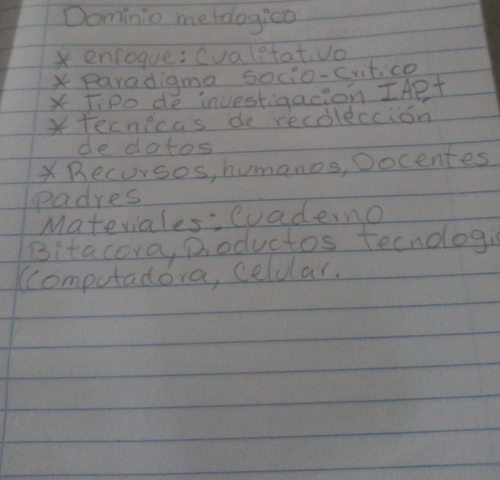 Dominio metdlogico
* enfoque: Cualitativo
* paradigma socio-critico
* Tipo de investigación IAPt
* tecnicas de recolección
de datos
* Recursos, humanos, Docentes
padres
Materiales: Cuaderno
Bitacora, Productos tecnologic
Computadora, Celular.